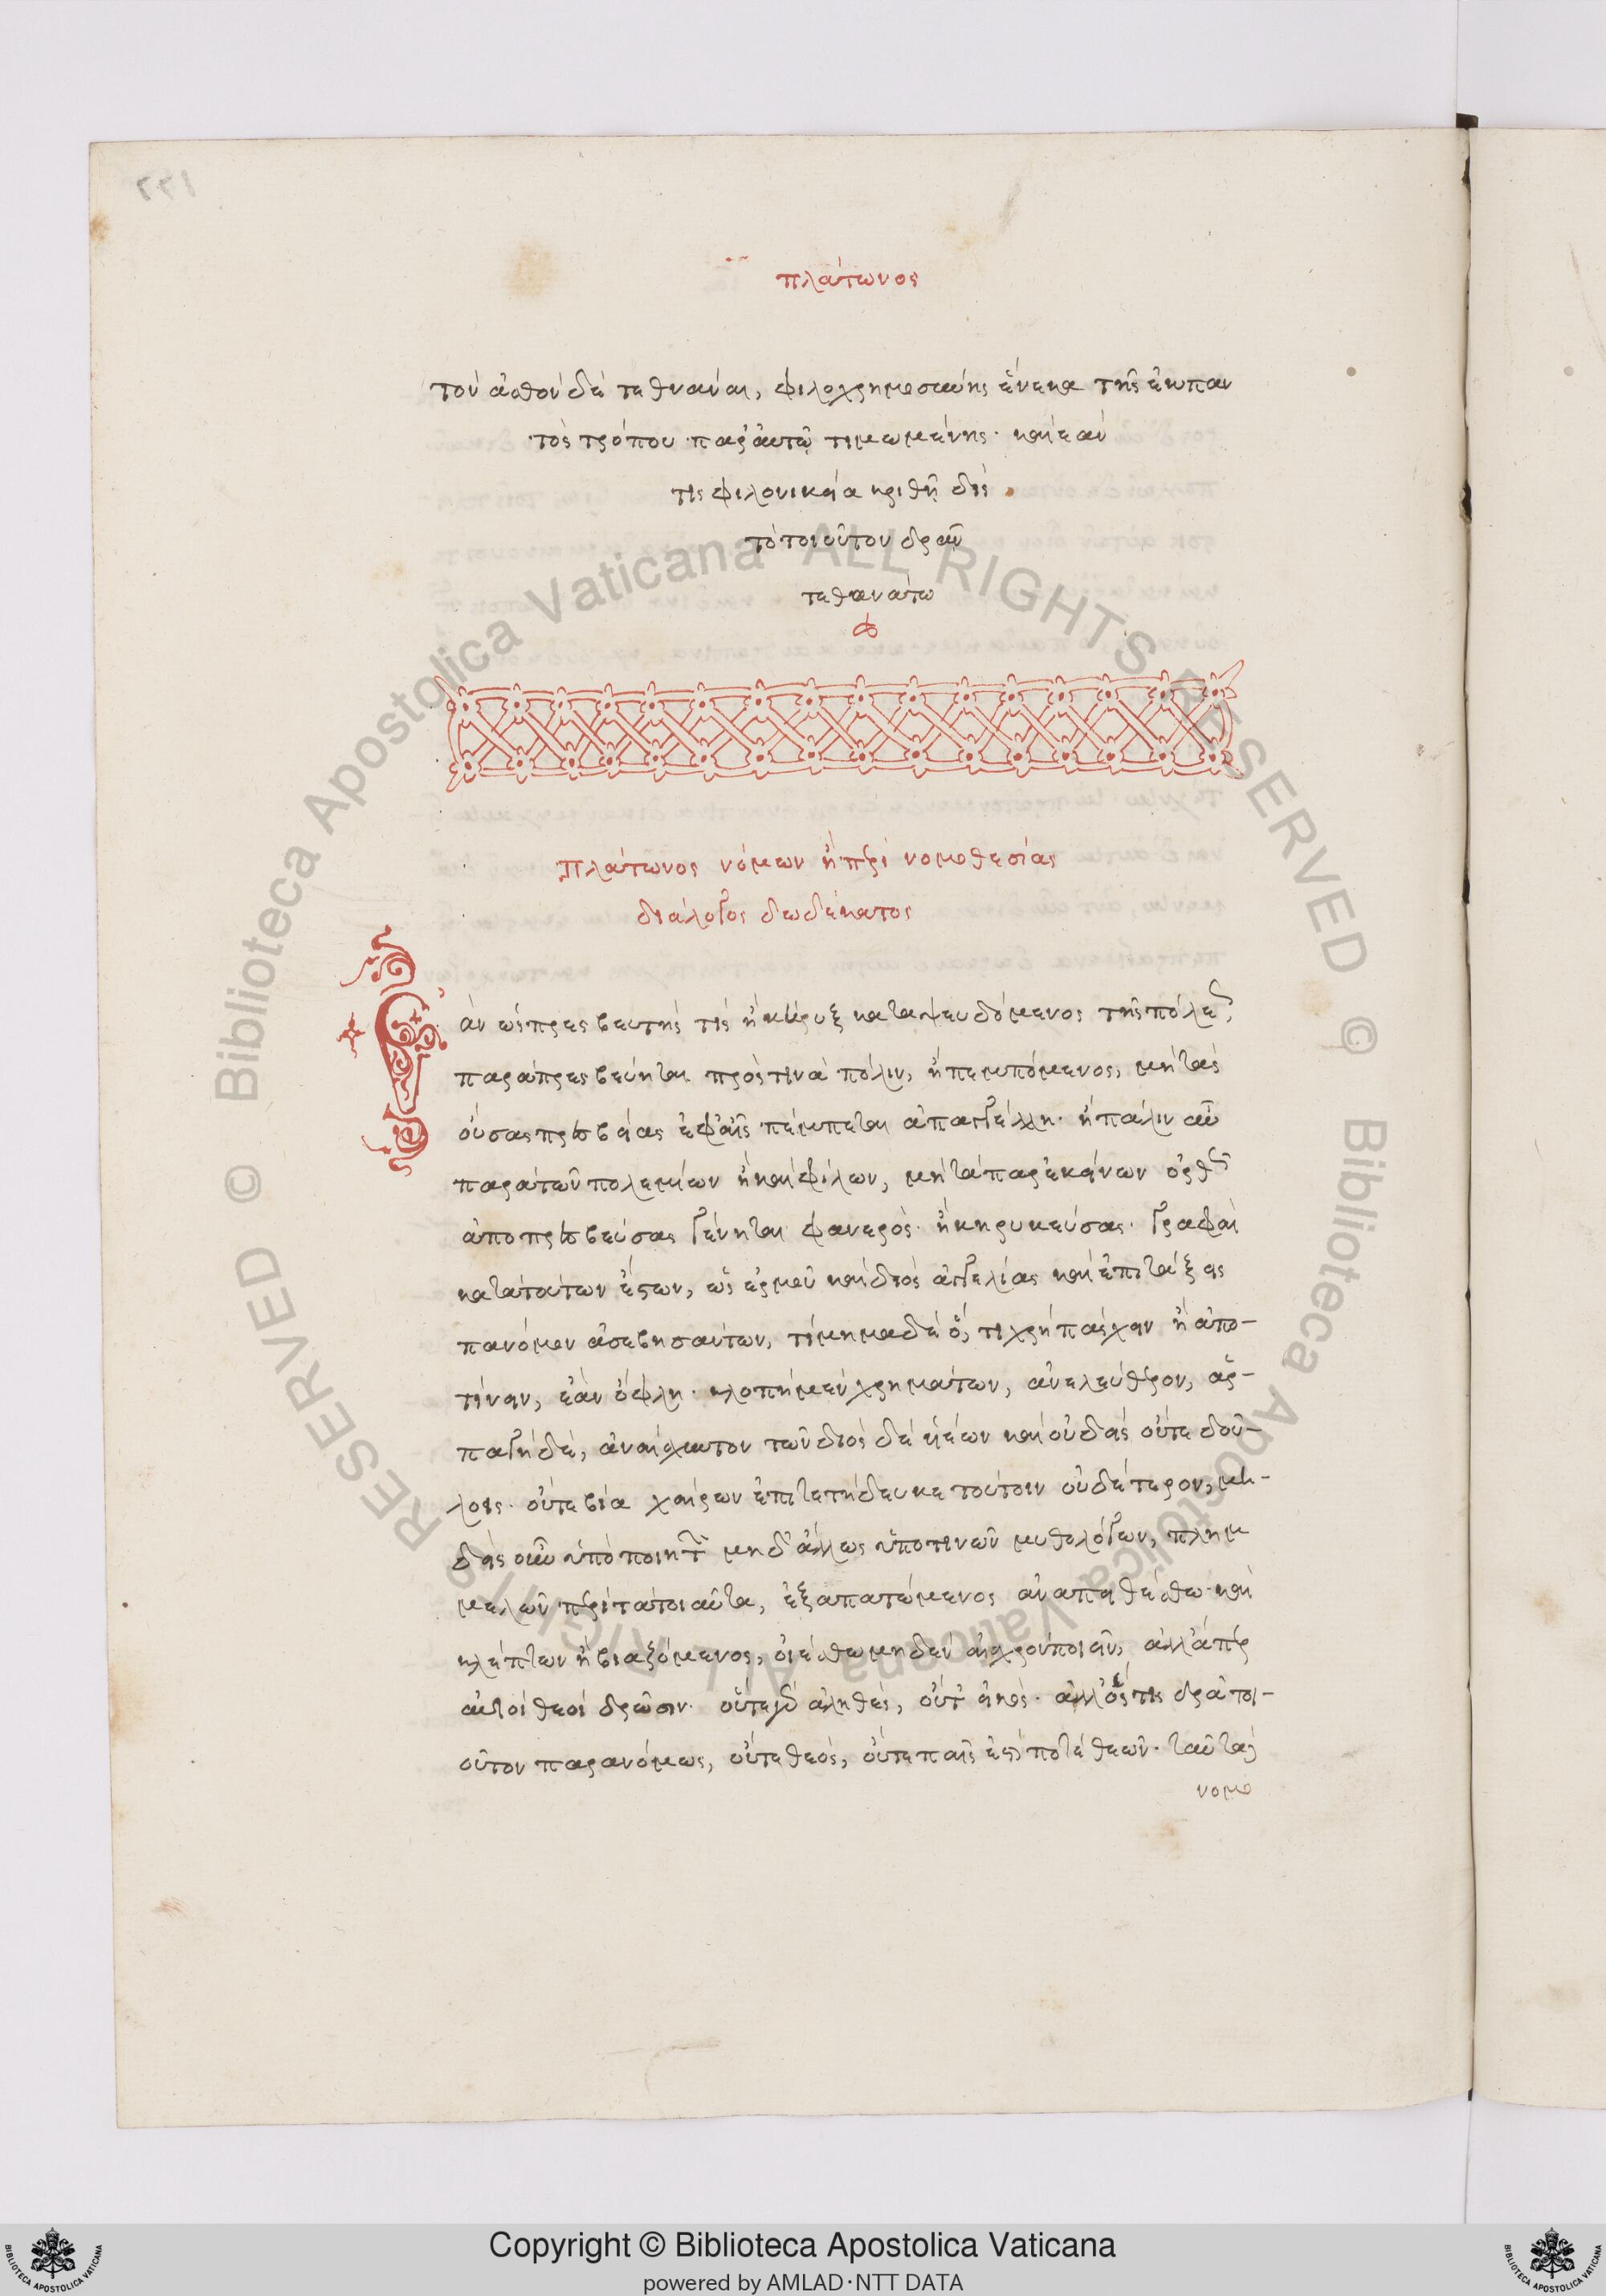 πλάτωνος
τὸν ἀστὸν δὲ τεθνάναι, φιλοχρημοσύνης ἕνεκα τῆς ἐκ παν
τὸς τρόπου παρ' αὐτῷ τιμωμένης· καὶ ἐὰν
τις φιλονικεία κριθῇ διὰ
τὸ τοιοῦτον δρᾶν
τεθανάτω
Πλάτωνος νόμων ἢ περὶ νομοθεσίας
διάλογος δωδέκατος
Ἐὰν ὡς πρεσβευτής τις ἢ κήρυξ καταψευδόμενος τῆς πόλεως,
παραπρεσβεύηται πρός τινα πόλιν, ἢ πεμπόμενος, μὴ τὰς
οὔσας πρεσβείας ἐφ' αἷς πέμπεται ἀπαγγέλλῃ· ἢ πάλιν αὖ
παρὰ τῶν πολεμίων ἢ καὶ φίλων, μὴ τὰ παρ' ἐκείνων ὀρθῶς
ἀποπρεσβεύσας γένηται φανερὸς· ἢ κηρυκεύσας· γραφαὶ
κατὰ τούτων ἔστων, ὡς ἑρμοῦ καὶ διὸς ἀγγελίας καὶ ἐπιτάξεις
πανόμον ἀσεβησάντων, τίμημα δὲ ὅ, τι χρὴ πάσχειν ἢ ἀπο-
τίνειν, ἐὰν ὄφλῃ· κλοπὴ μὲν χρημάτων, ἀνελεύθερον, ἁρ-
παγὴ δὲ, ἀναίσχυντον τῶν διὸς δὲ υἱέων καὶ οὐδεὶς οὔτε δού-
λοις· οὔτε βίᾳ χαίρων ἐπιτετήδευκε τούτοιν οὐδέτερον, μη-
δεὶς οὖν ὑπὸ ποιητῶν μηδ' ἄλλως ὑπό τινων μυθολόγων, πλημ
μελῶν περὶ τὰ τοιαῦτα, ἐξαπατώμενος ἀναπειθέσθω· καὶ
κλέπτων ἢ βιαζόμενος, οἰέσθω μηδὲν αἰσχρὸν ποιεῖν, ἀλλ' ἅπερ
αὐτοὶ θεοὶ δρῶσιν· οὔτε γὰρ ἀληθὲς, οὔτ' εἰκὸς· ἀλλ' ὅστις δρᾷ τοι-
οῦτον παρανόμως, οὔτε θεὸς, οὔτε παῖς ἐστί ποτε θεῶν· ταῦτα δὲ
νομο
Copyright © Biblioteca Apostolica Vaticana
powered by AMLAD·NTT DATA